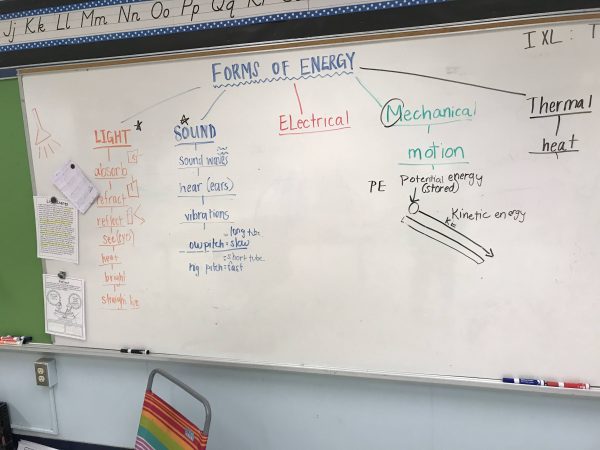 Jj Kk Ll Mm Nn Oo Pp Qq
I XL : T
FORMS OF ENERGY
LIGHT
absorb
refract
reflect
see(eyes)
heat
bright
straight line
SOUND
sound waves
hear (ears)
vibrations
ow pitch = slow
= long tube
hig pitch = fast
= short tube
ELectrical
Mechanical
motion
PE Potential energy
(stored)
Kinetic energy
KE
Thermal
heat